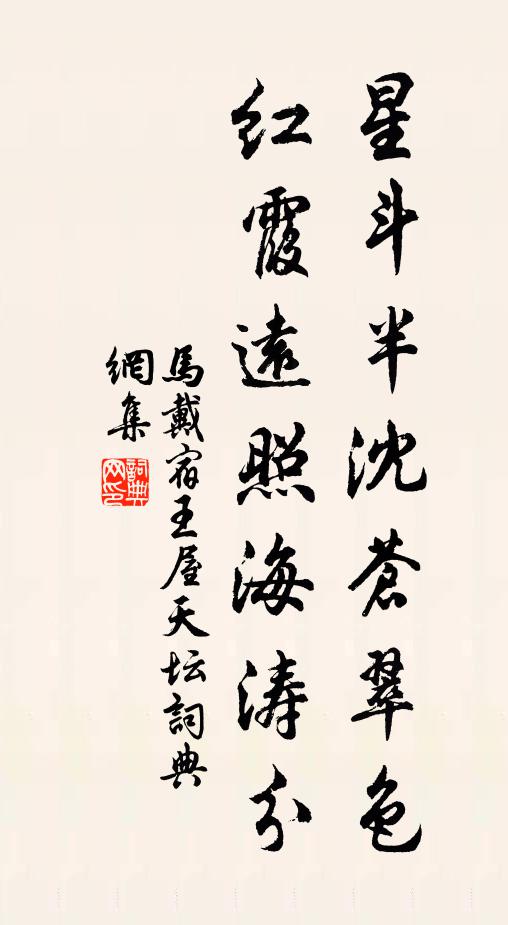 星斗半沈蒼翠色
红霞遠照海涛分
馬戴宿王屋天坛詞典
網集
詞典
网印